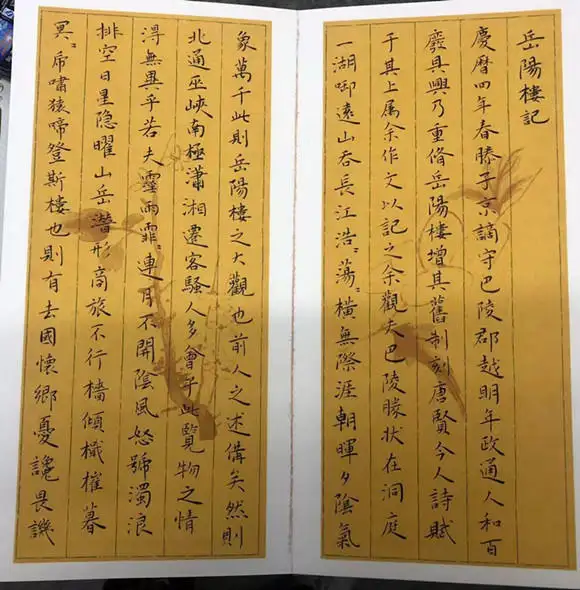 岳陽樓記
慶曆四年春滕子京謫守巴陵郡越明年政通人和百
廢具興乃重脩岳陽樓增其舊制刻唐賢今人詩賦
于其上属余作文以記之余觀夫巴陵勝狀在洞庭
一湖啣遠山吞長江浩〻蕩〻橫無際涯朝暉夕陰氣
象萬千此則岳陽樓之大觀也前人之述備矣然則
北通巫峽南極瀟湘遷客騷人多會于此覽物之情
得無異乎若夫霪雨霏〻連月不開陰風怒號濁浪
排空日星隱曜山岳潛形商旅不行檣傾檝摧暮
冥〻虎嘯猿啼登斯樓也則有去國懷鄉憂讒畏譏